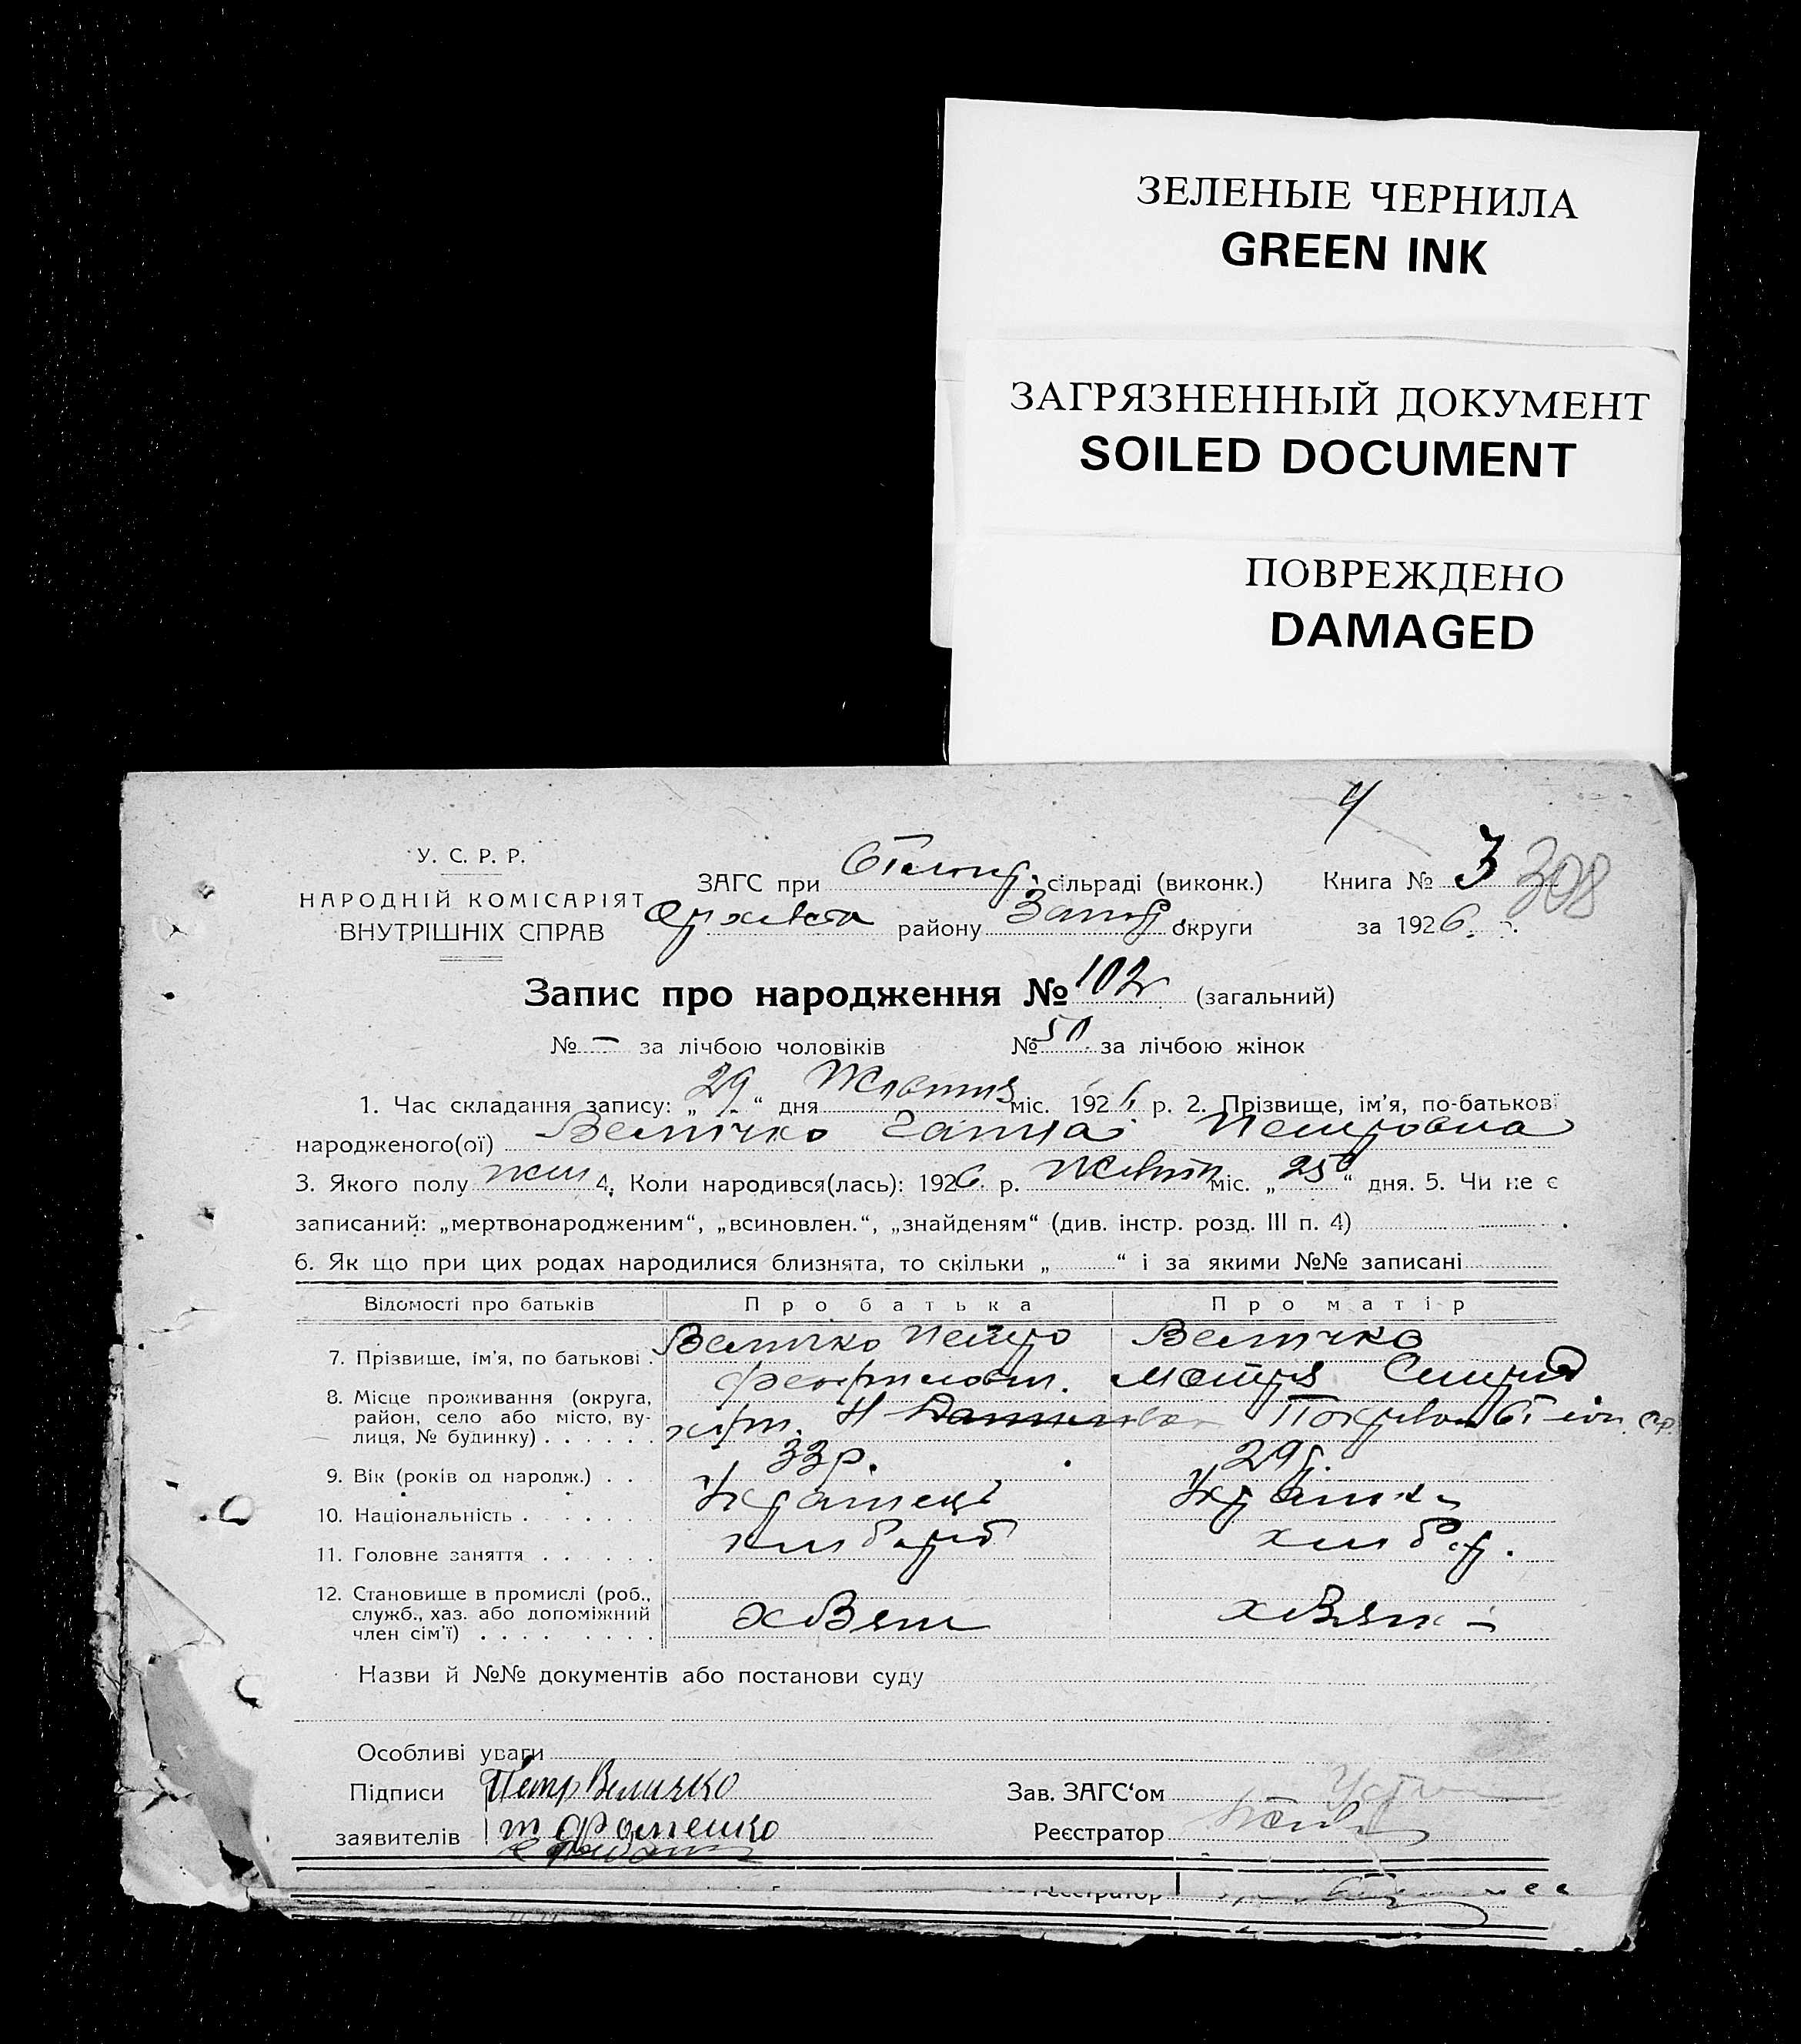 ЗЕЛЕНЫЕ ЧЕРНИЛА
GREEN INK
ЗАГРЯЗНЕННЫЙ ДОКУМЕНТ
SOILED DOCUMENT
ПОВРЕЖДЕНО
DAMAGED
У. С. Р. Р.
НАРОДНІЙ КОМІСАРІЯТ
ВНУТРІШНІХ СПРАВ
ЗАГС при сільраді (виконк.) Книга № 3 308
району Запор округи за 1926.
Запис про народження № 102 (загальний)
№ — за лічбою чоловіків № 50 за лічбою жінок
1. Час складання запису: „29“ дня Жовтня міс. 1926 р. 2. Прізвище, ім’я, по-батькові
народженого(ої) Величко Ганна Петровна
3. Якого полу жін 4. Коли народився(лась): 1926 р. Жовтн міс. „25“ дня. 5. Чи не є
записаний: „мертвонародженим“, „всиновлен.“, „знайденям“ (див. інстр. розд. III п. 4)
6. Як що при цих родах народилися близнята, то скільки „ “ і за якими №№ записані
Відомості про батьків Про батька Про матір
7. Прізвище, ім’я, по батькові . Величко Петро Величко
8. Місце проживання (округа,
район, село або місто, ву-
лиця, № будинку) . . . . . .
9. Вік (років од народж.) . . 33 р. 29 р.
10. Національність . . . . . . Українець Українка
11. Головне заняття . . . . . . хлібороб хлібор.
12. Становище в промислі (роб.,
служб., хаз. або допоміжний
член сім’ї) . . . . . . . .
Назви й №№ документів або постанови суду
Особливі уваги
Підписи Петр Величко Зав. ЗАГС‘ом
заявителів т Фоменко Реєстратор
Реєстратор